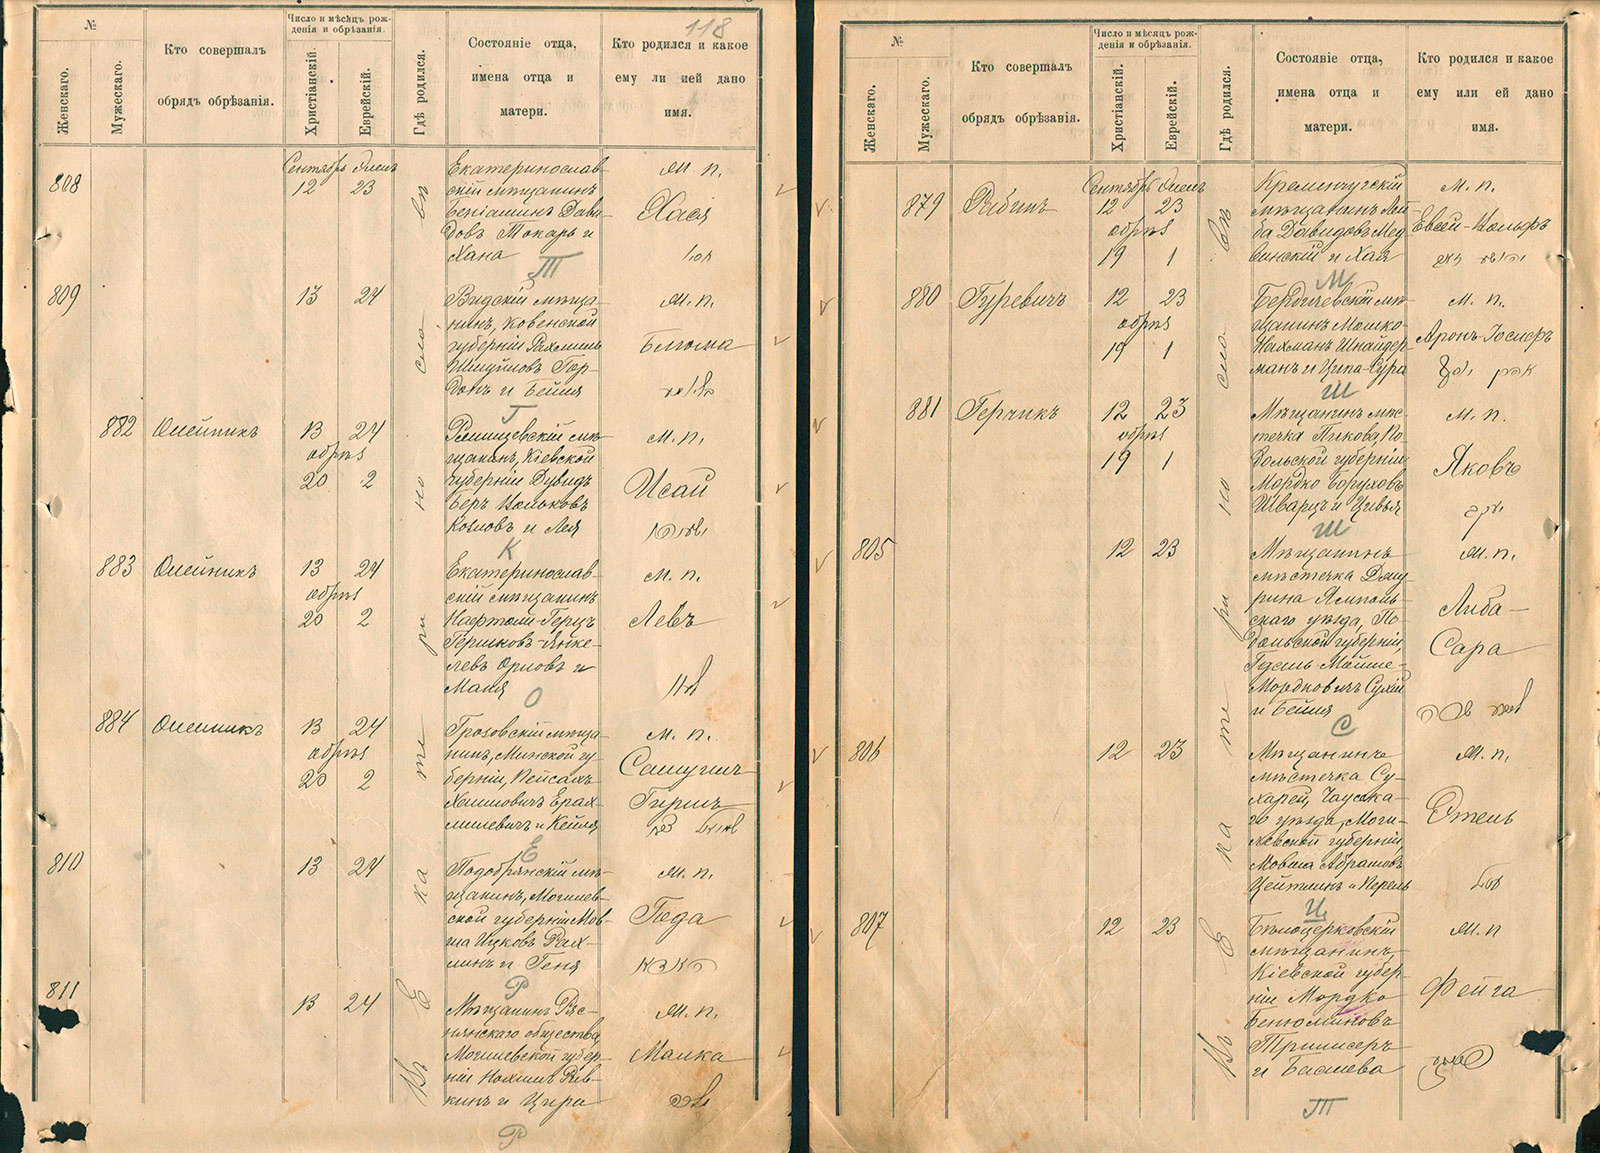 118
№
Женскаго.
Мужескаго.
Кто совершалъ
обрядъ обрѣзанія.
Число и мѣсяцъ рож-
денія и обрѣзанія.
Христіанскій.
Еврейскій.
Гдѣ родился.
Состояніе отца,
имена отца и
матери.
Кто родился и какое
ему ли ией дано
имя.
Въ Екатеринославѣ
808
Сентябрь
12 23
Екатеринослав-
скій мѣщанинъ
Беніаминъ Дави-
довъ Токарь и
Хана
м. п.
Хася
Т
809
13 24
Видскій мѣща-
нинъ, Ковенской
губерніи Рахмиль
Гор-
донъ и Бейля
м. п.
Г
882
Олейникъ
13 24
обрѣз
20 2
мѣ-
щанинъ, Кіевской
губерніи Дувидъ
Беръ Вольковъ
Козловъ и Лея
м. п.
Исай
К
883
Олейникъ
13 24
обрѣз
20 2
Екатеринослав-
скій мѣщанинъ
Нафтоли-Герцъ
Гершковъ-Янке-
левъ Орловъ и
Маня
м. п.
Левъ
О
884
Олейникъ
13 24
обрѣз
20 2
Грозовскій мѣща-
нинъ, Минской гу-
берніи, Пейсахъ
Хаимовичъ Ерах-
милевичъ и Кейля
м. п.
Самуилъ
Гиршъ
Е
810
13 24
Подобрянскій мѣ-
щанинъ, Могилев-
ской губерніи Мов-
ша Ицковъ Рах-
линъ и Геня
м. п.
Геда
Р
811
13 24
Мѣщанинъ Ряс-
нянскаго общества,
Могилевской губер-
ніи Нохимъ Рив-
кинъ и Цира
м. п.
Малка
Р
№
Женскаго.
Мужескаго.
Кто совершалъ
обрядъ обрѣзанія.
Число и мѣсяцъ рож-
денія и обрѣзанія.
Христіанскій.
Еврейскій.
Гдѣ родился.
Состояніе отца,
имена отца и
матери.
Кто родился и какое
ему или ей дано
имя.
Въ Екатеринославѣ
879
Рабинъ
Сентябрь
12 23
обрѣз
19 1
Кременчугскій
мѣщанинъ Лей-
ба Давидовъ Мед-
винскій и Хая
м. п.
Евсей-Вольфъ
М
880
Гуревичъ
12 23
обрѣз
19 1
Бердичевскій мѣ-
щанинъ Мошко-
Нахманъ Шнайдер-
манъ и Ципа-Сура
м. п.
Аронъ-Іосифъ
אהרן יוסף
Ш
881
Герчикъ
12 23
обрѣз
19 1
Мѣщанинъ мѣс-
течка Пикова, По-
дольской губерніи
Мордко Боруховъ
Шварцъ и Цивья
м. п.
Яковъ
יעקב
Ш
805
12 23
Мѣщанинъ
мѣстечка Дзыг-
рина Ямполь-
скаго уѣзда, По-
дольской губерніи,
Мойше-
Мордковичъ Сухій
и Бейля
м. п.
Либа-
Сара
С
806
12 23
Мѣщанинъ
мѣстечка Су-
харей, Чаусска-
го уѣзда, Моги-
левской губерніи,
Мовша Абрамовъ
Цейтлинъ и Перель
м. п.
Этель
Ц
807
12 23
Бѣлоцерковскій
мѣщанинъ,
Кіевской губер-
ніи Мордко
Беньюминовъ
Триллисеръ
и Башева
м. п
Фейга
Т